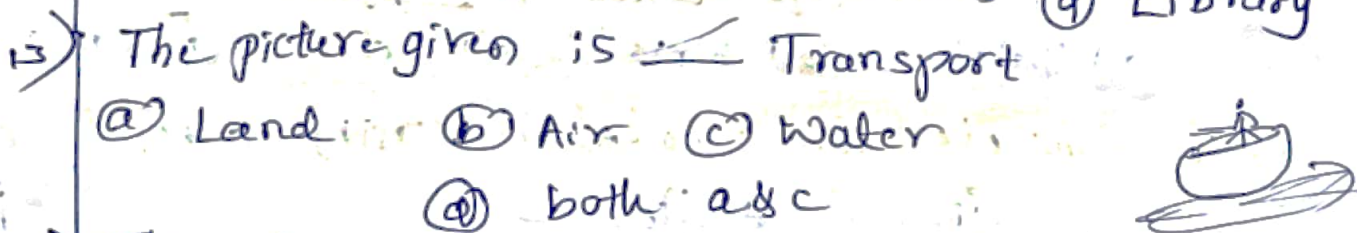 (d) Library
13) The picture given is ___ Transport
(a) Land (b) Air (c) Water
(d) both a & c